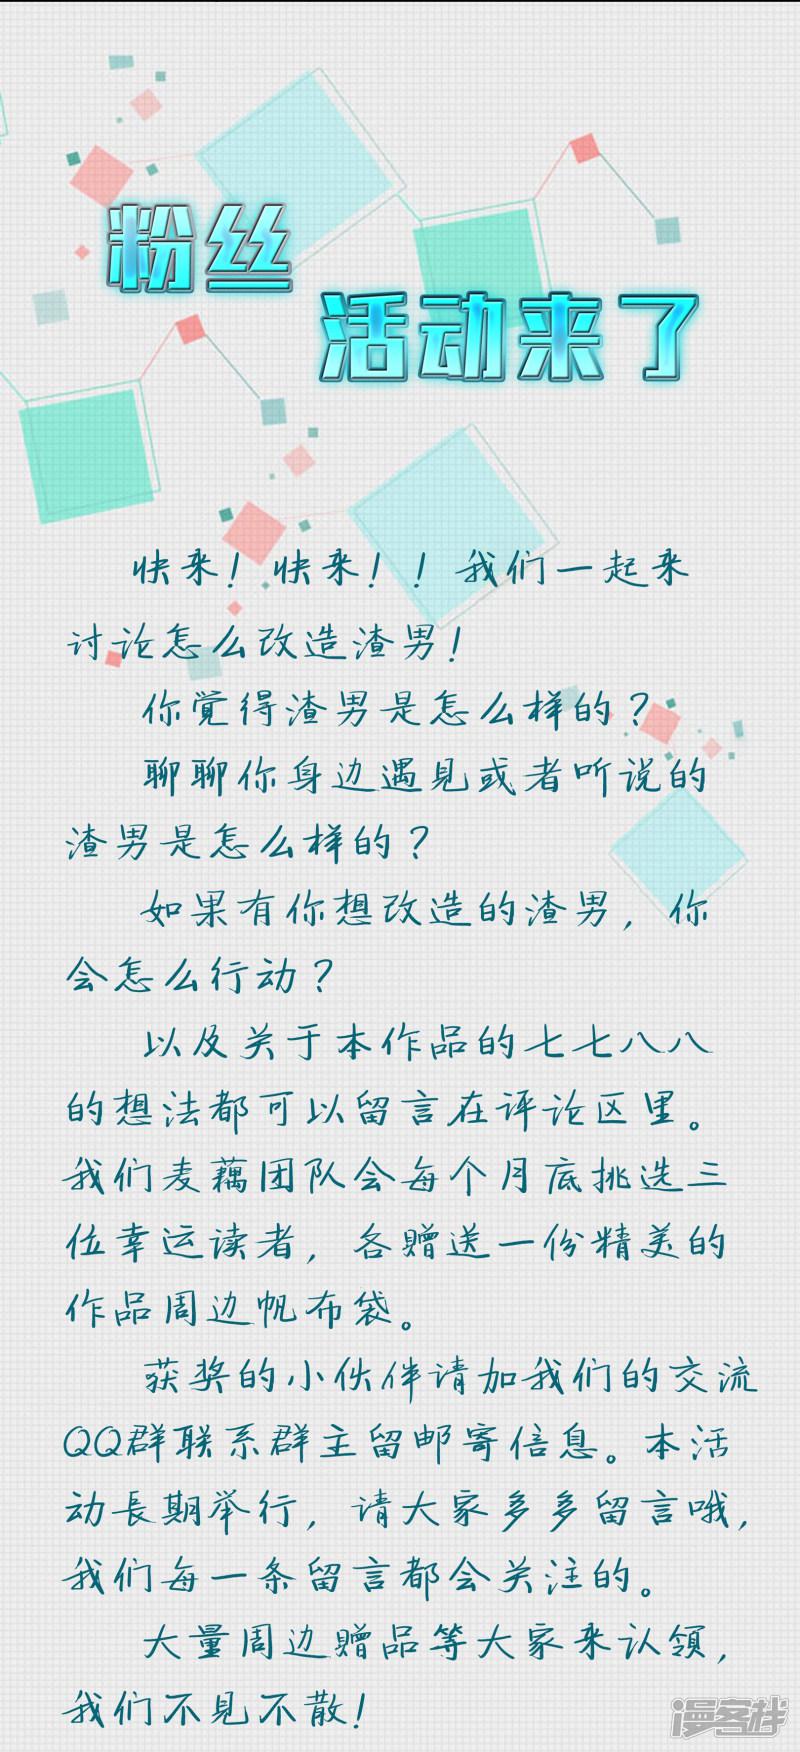 粉丝
活动来了
快来！快来！！我们一起来
讨论怎么改造渣男！
你觉得渣男是怎么样的？
聊聊你身边遇见或者听说的
渣男是怎么样的？
如果有你想改造的渣男，你
会怎么行动？
以及关于本作品的七七八八
的想法都可以留言在评论区里。
我们麦藕团队会每个月底挑选三
位幸运读者，各赠送一份精美的
作品周边帆布袋。
获奖的小伙伴请加我们的交流
QQ群联系群主留邮寄信息。本活
动长期举行，请大家多多留言哦，
我们每一条留言都会关注的。
大量周边赠品等大家来认领，
我们不见不散！
漫客栈